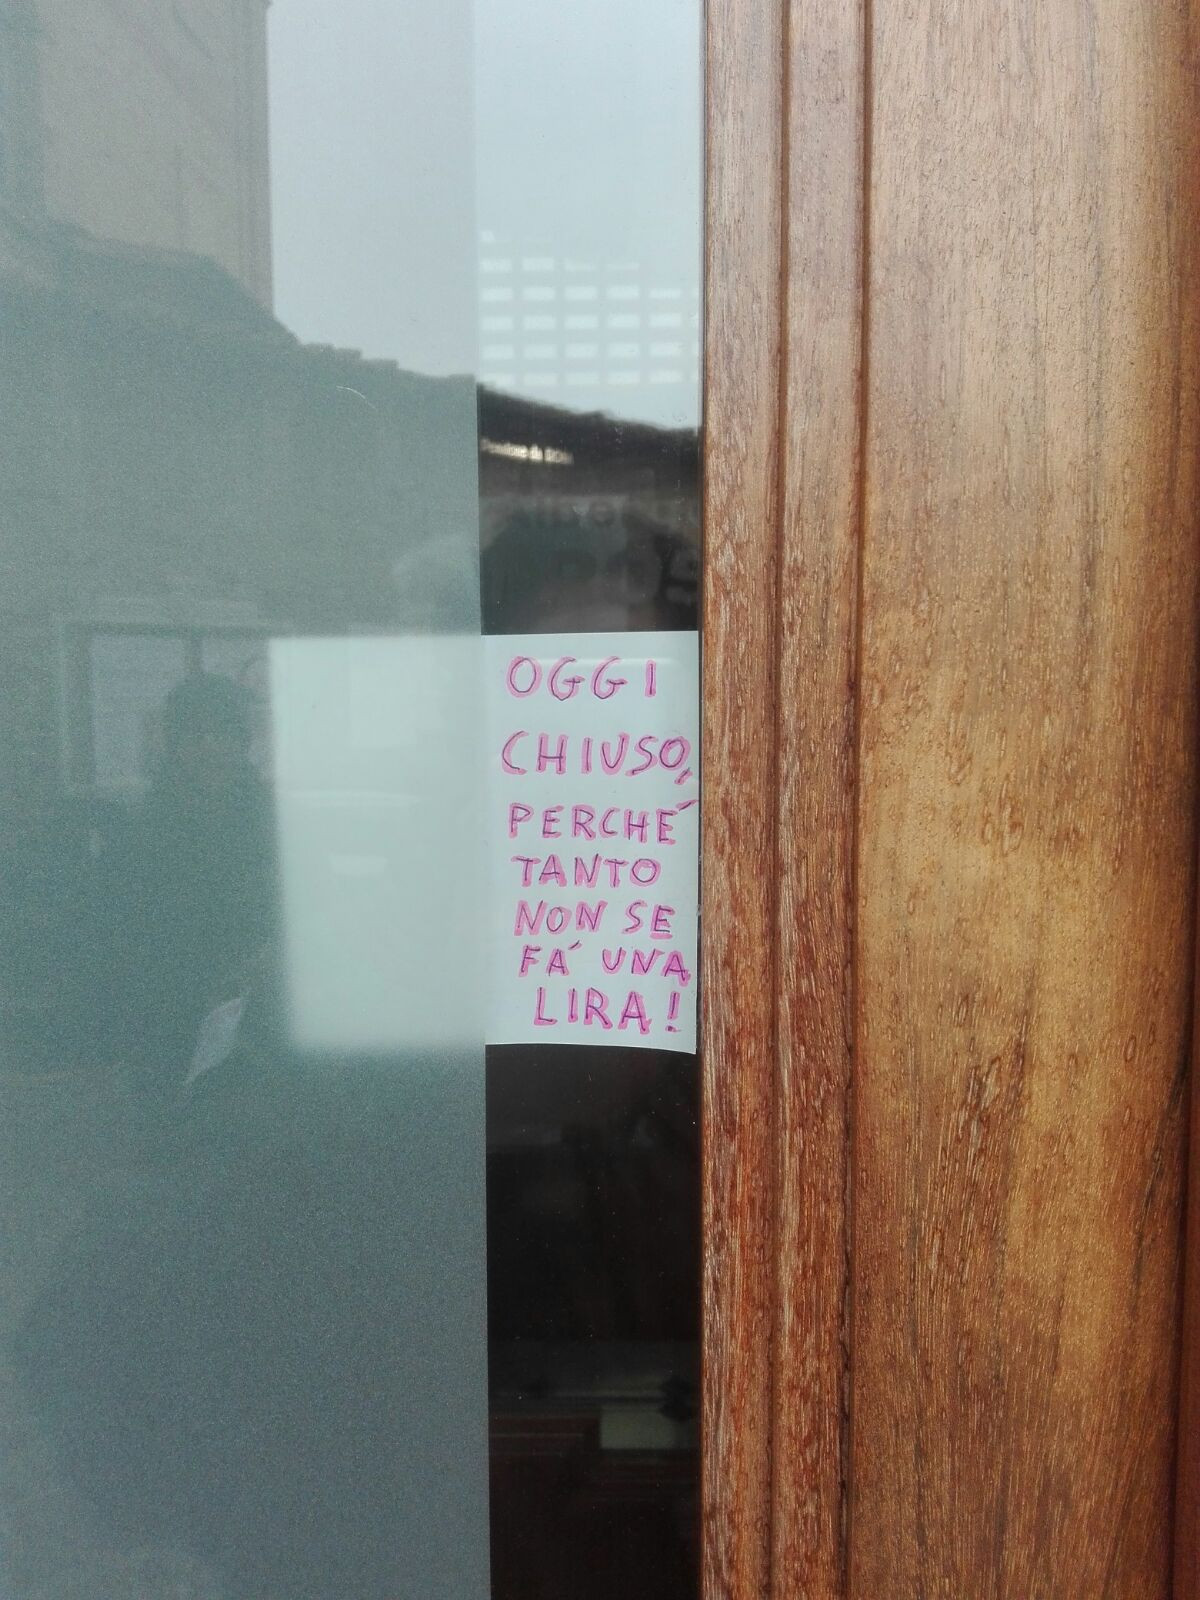 OGGI
CHIUSO,
PERCHÉ
TANTO
NON SE
FÁ UNA
LIRA!